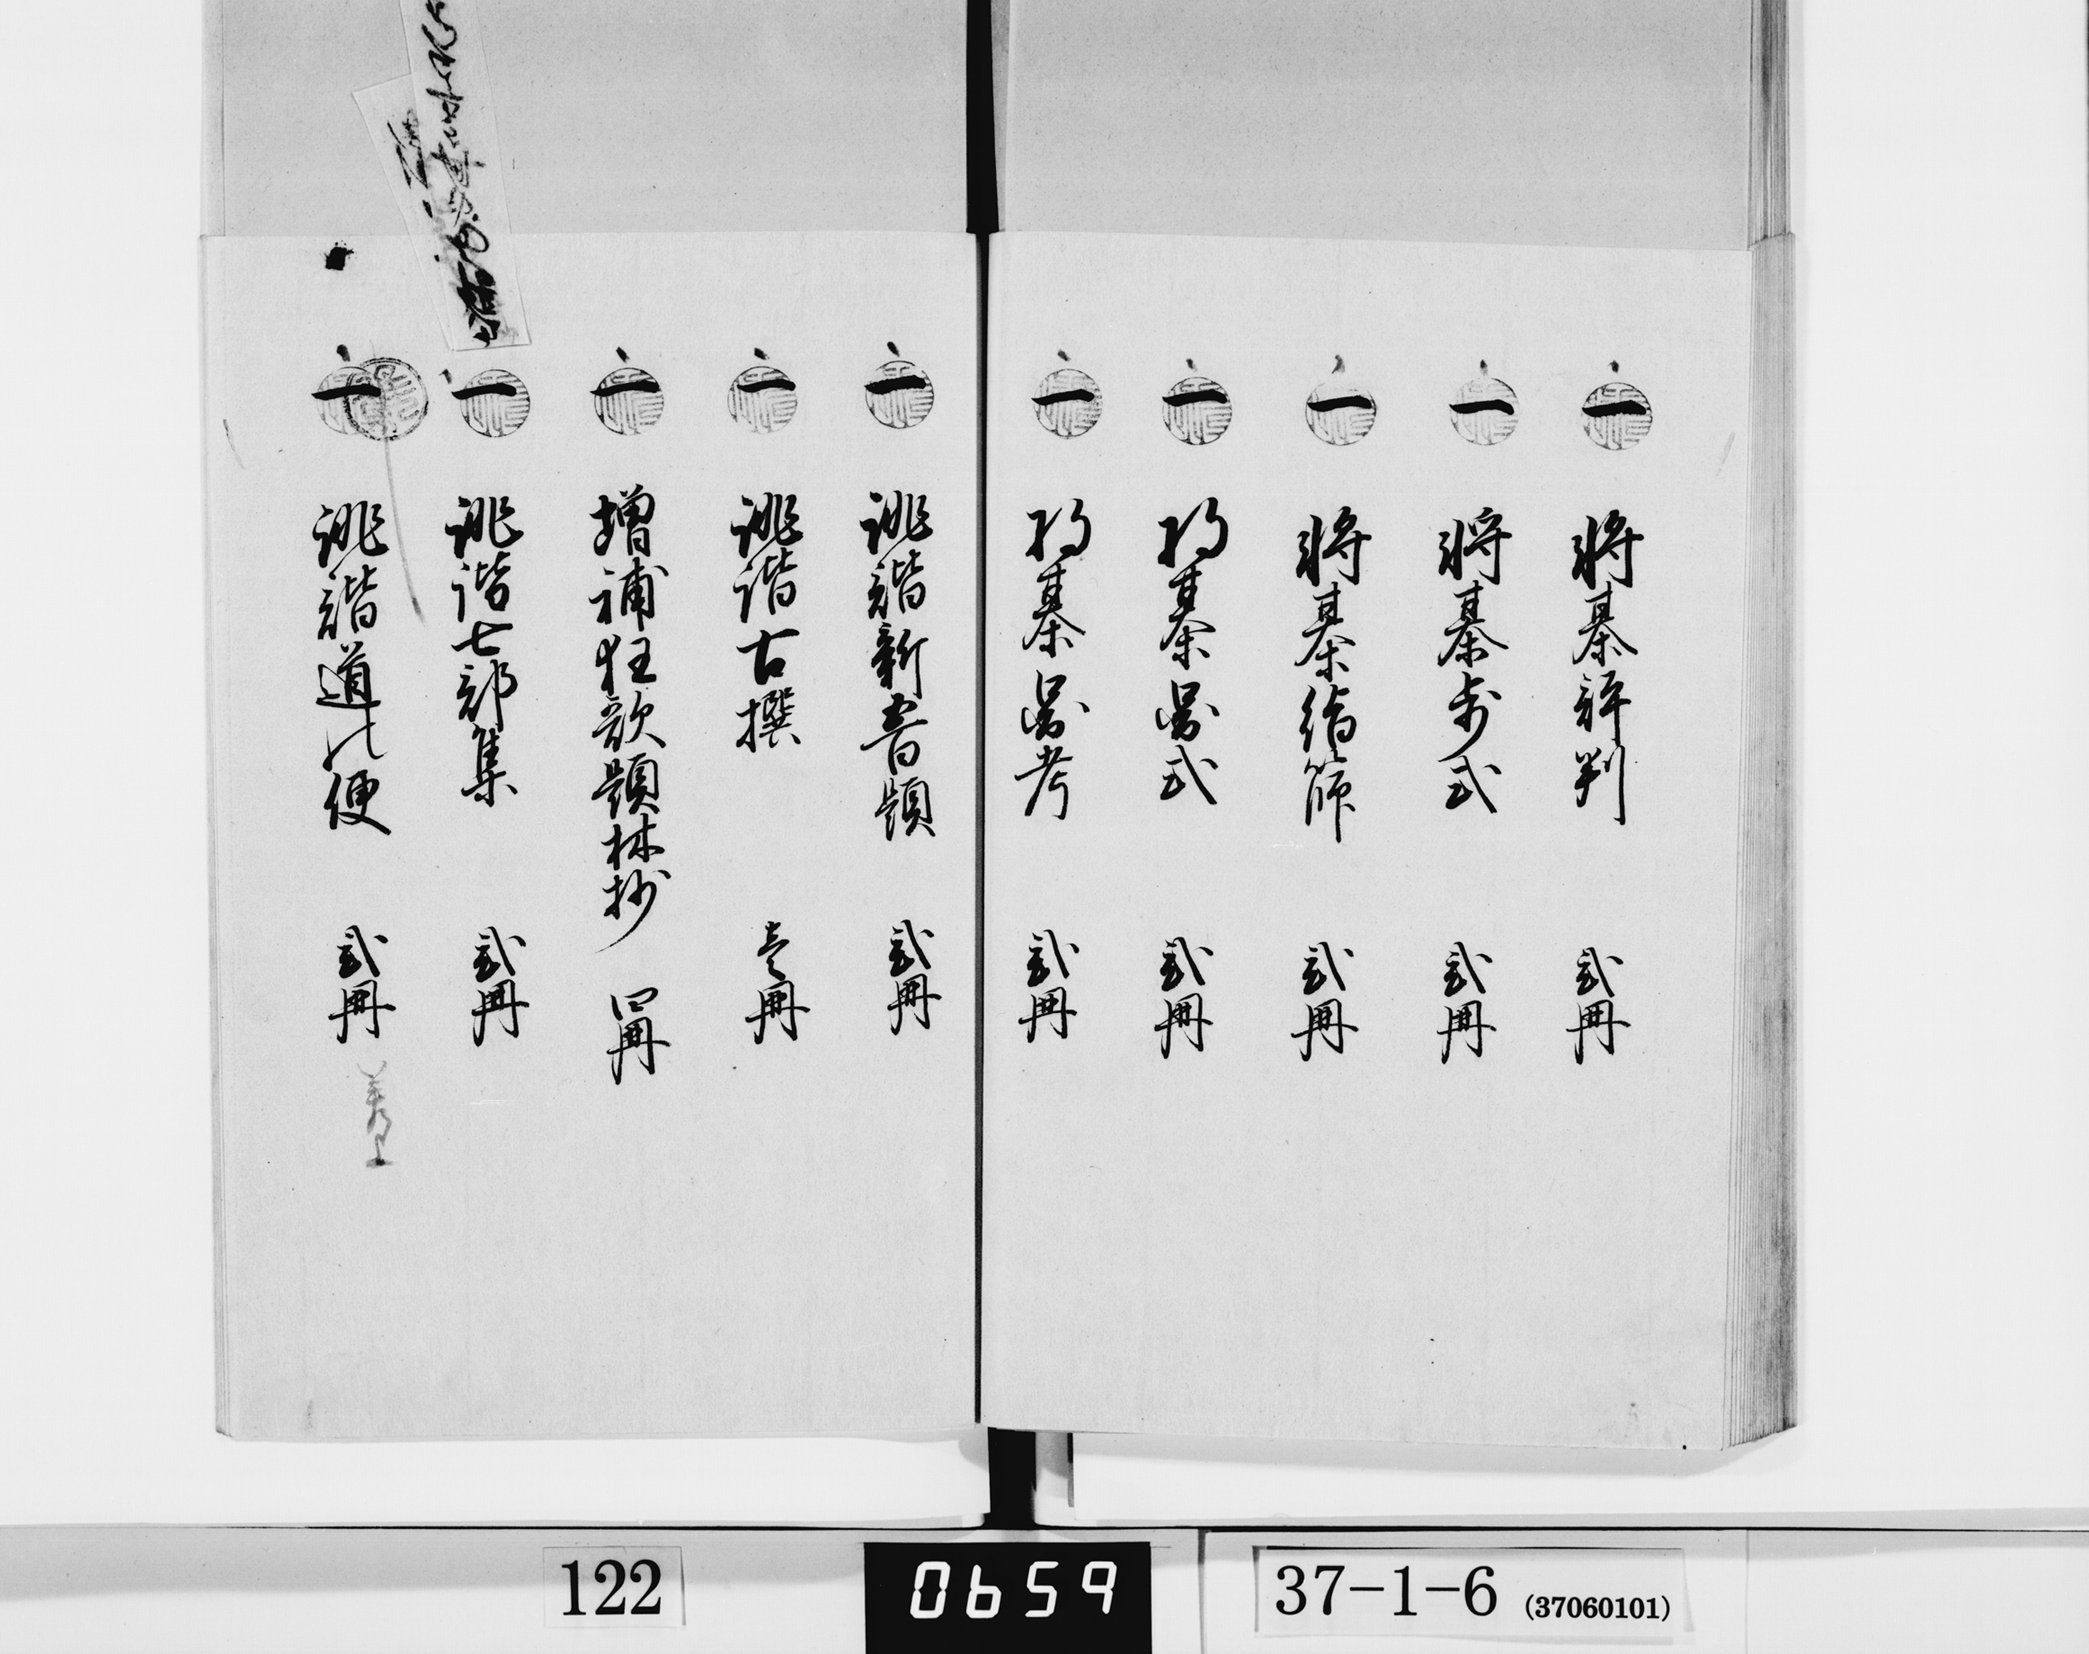 一 将棊評判 弐冊
一 将棊歩式 弐冊
一 将棊指篩 弐冊
一 将棊図式 弐冊
一 将棊図考 弐冊
一 誹諧新書題 弐冊
一 誹諧古撰 壱冊
一 増補狂歌題林抄 四冊
一 誹諧七部集 弐冊
一 誹諧道の便 弐冊
122
0659
37-1-6 (37060101)